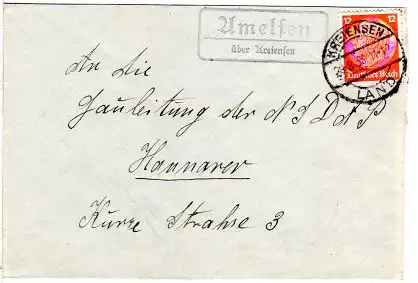 Amelsen
über Kreiensen
KREIENSEN
LAND
12 12
Deutsches Reich
An die
Gauleitung der N S D A P
Hannover
Kurze Strahse 3